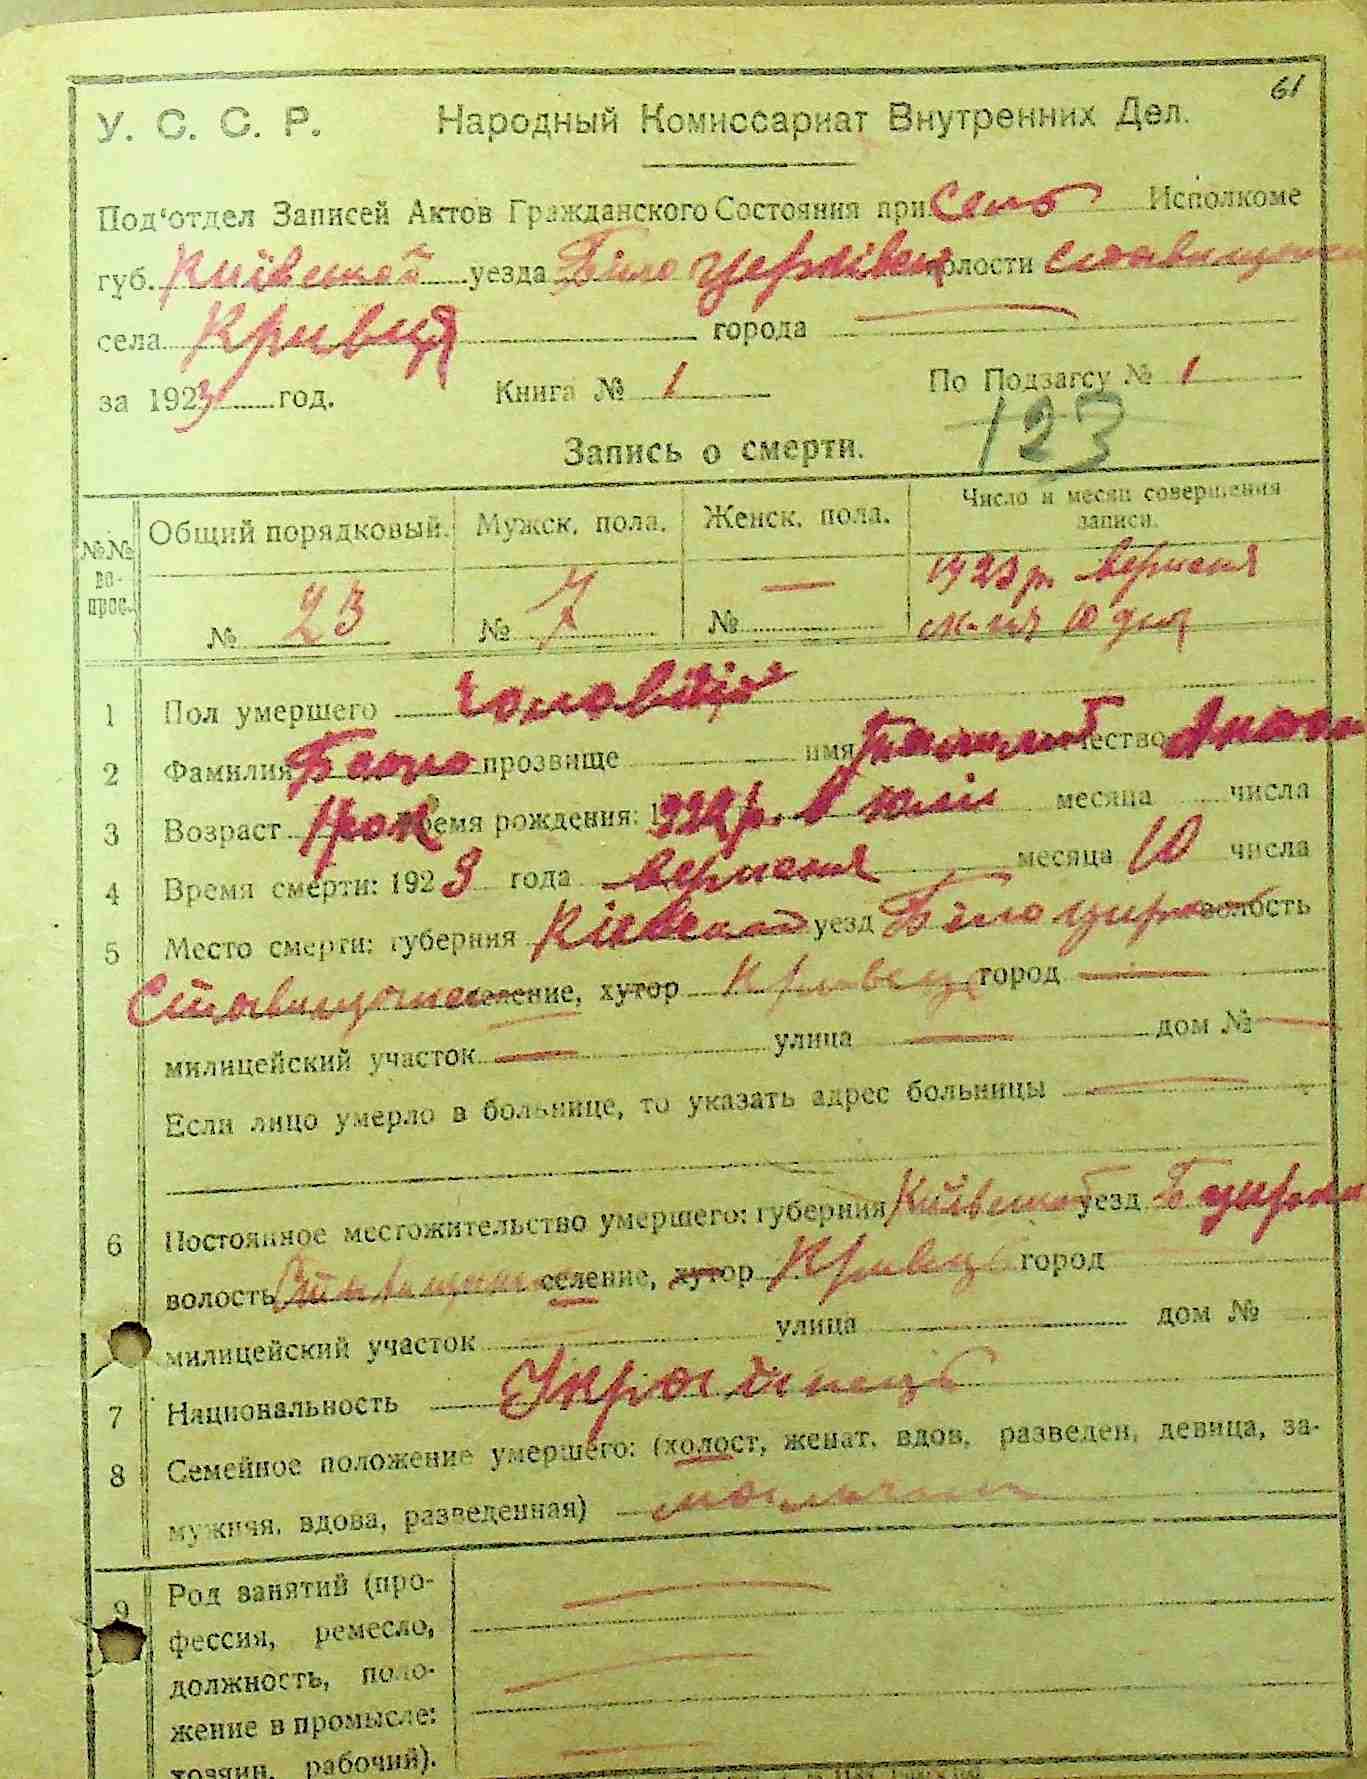 61
У. С. С. Р. Народный Комиссариат Внутренних Дел.
Под‘отдел Записей Актов Гражданского Состояния при Село Исполкоме
губ. Київской уезда Біло церківск волости Ставищан
села Кривця города —
за 1923 год. Книга № 1 По Подзагсу № 1
123
Запись о смерти.
№№ вопрос. Общий порядковый. Мужск. пола. Женск. пола. Число и месяц совершения записи.
№ 23 № 7 № — 1923 р. вересня м-ця 10 дня
1 Пол умершего
2 Фамилия прозвище имя отчество
3 Возраст 1 рок Время рождения: 1922 р. в юлі месяца числа
4 Время смерти: 1923 года вересня месяца 10 числа
5 Место смерти: губерния Київская уезд Біло церк волость
селение, хутор Кривець город —
милицейский участок — улица — дом № —
Если лицо умерло в больнице, то указать адрес больницы —
6 Постоянное местожительство умершего: губерния Київской уезд Б церкв
волость селение, хутор Кривець город
милицейский участок улица дом №
7 Национальность Українець
8 Семейное положение умершего: (холост, женат, вдов, разведен, девица, за-
мужняя, вдова, разведенная)
9 Род занятий (про- —
фессия, ремесло,
должность, поло- —
жение в промысле:
хозяин, рабочий). —